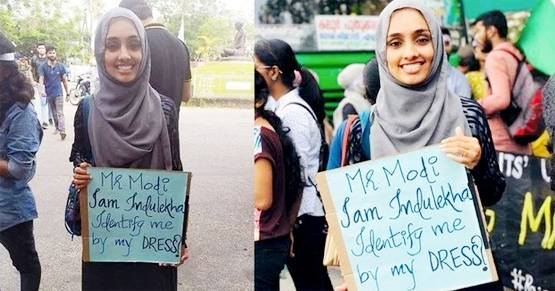 Mr Modi
I am Indulekha
Identify me
by my DRESS!
Mr Modi
I am Indulekha
Identify me
by my DRESS!